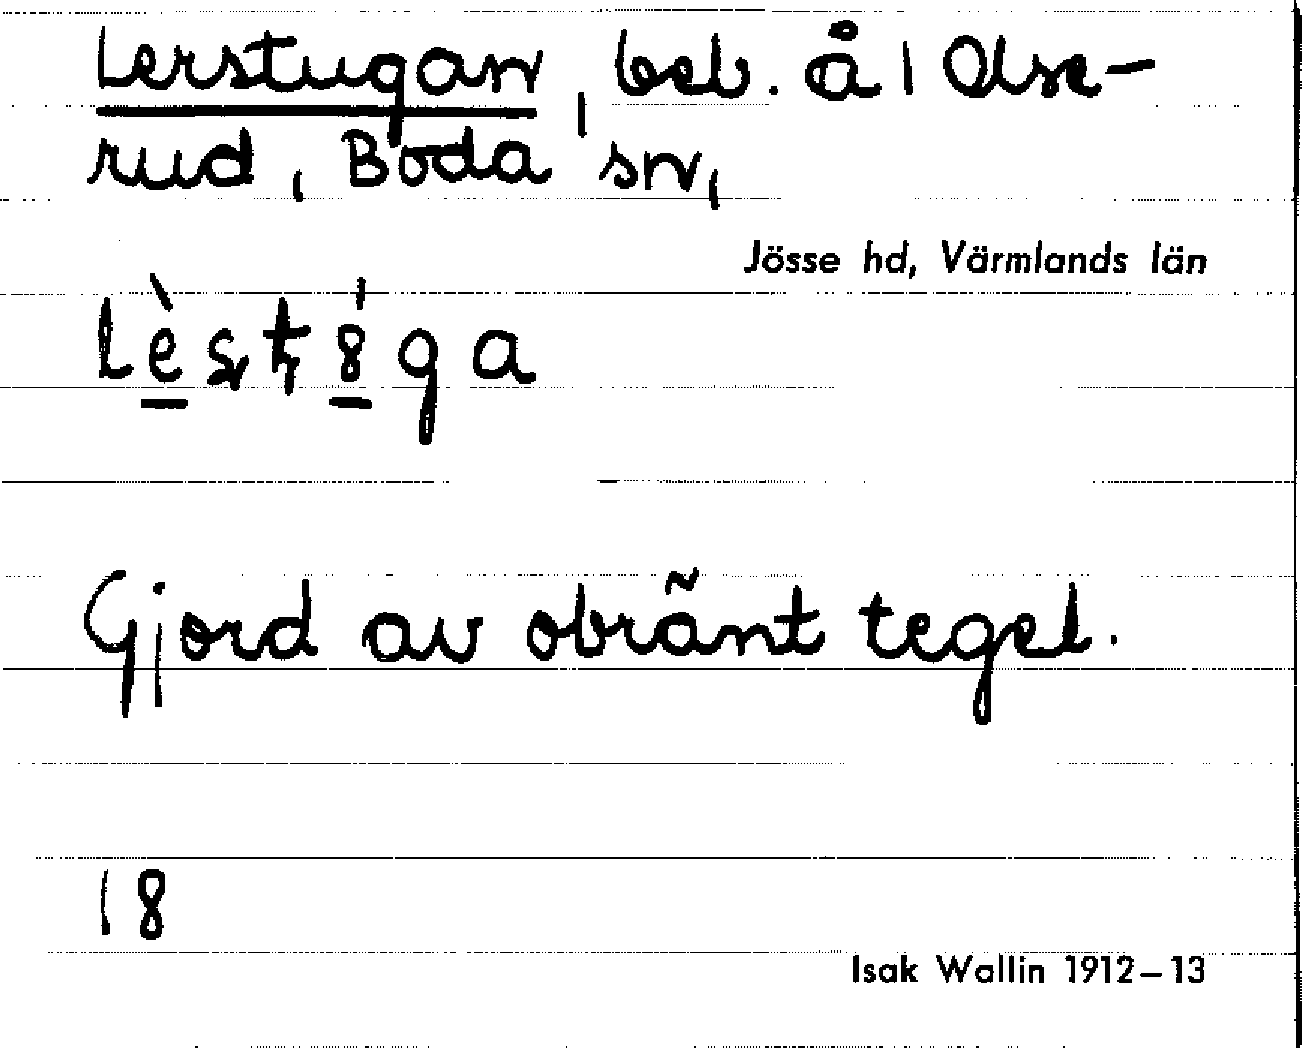 Lerstugan, beb. å 1 Olse-
rud, Boda sn,
Jösse hd, Värmlands län
Lèst8́ga
Gjord av obränt tegel.
18
Isak Wallin 1912–13